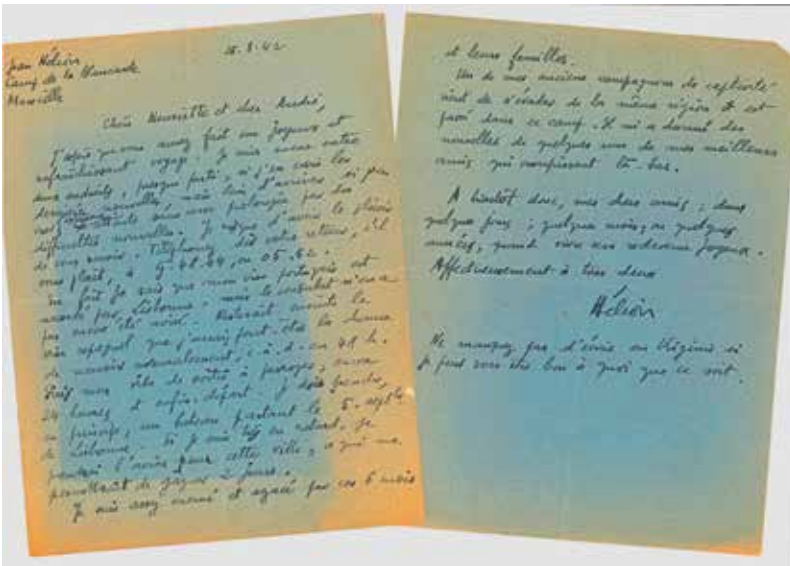 Jean Hélion
Camp de la Blancarde
Marseille
18.8.42
Chère Henriette et cher André,
J'espère que vous avez fait un joyeux et
rafraîchissant voyage. Je suis encore entre
deux endroits, presque parti, si j'en crois les
dernières nouvelles, mais loin d'arriver, si
difficultés nouvelles. Je risque d'avoir le plaisir
de vous revoir. Téléphonez dès votre retour, s'il
vous plaît, à
En fait je sais que mon visa portugais est
accordé par Lisbonne. mais le consulat n'en a
pas encore été avisé. Restait ensuite le
visa espagnol que j'aurai
normalement, c. à. d. en 48 h.
Puis mon visa de sortie à proroger, encore
24 heures, et enfin départ. Je dois prendre,
en principe, un bateau partant le 5 sept
de Lisbonne. Si je suis en retard, je
prendrai l'avion pour cette ville, ce qui me
permettrait de gagner 2 jours.
Je suis assez énervé et agacé par ces 6 mois
et leurs familles.
Un de mes anciens compagnons de captivité
vient de s'évader de la même région et est
passé dans ce camp. Il m'a donné des
nouvelles de quelques uns de mes meilleurs
amis qui croupissent là-bas.
A bientôt donc, mes chers amis ; dans
quelques jours ; quelques mois, ou quelques
années, quand vivre sera redevenu joyeux.
Affectueusement à tous deux
Hélion
Ne manquez pas d'écrire en Virginie si
je peux vous être bon à quoi que ce soit.